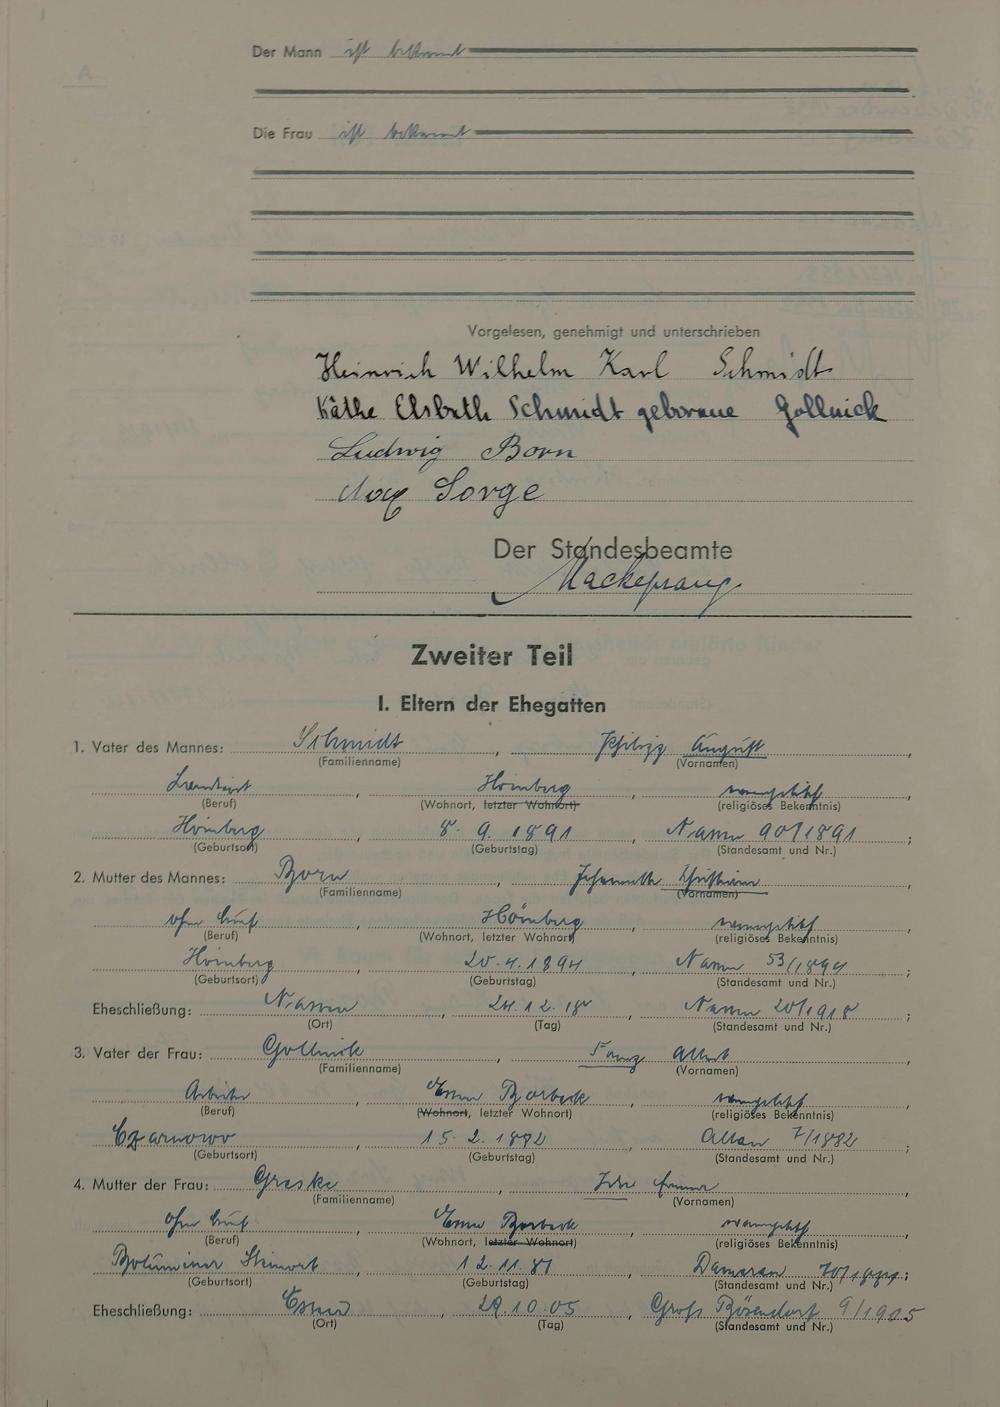 Der Mann ist bekannt
Die Frau ist bekannt
Vorgelesen, genehmigt und unterschrieben
Heinrich Wilhelm Karl Schmidt
Käthe Elsbeth Schmidt geborene Gollnick
Ludwig Born
Max Sorge
Der Standesbeamte
Mackeprang
Zweiter Teil
I. Eltern der Ehegatten
1. Vater des Mannes: Schmidt, Philipp August,
(Familienname) (Vornamen)
Landwirt, Hömberg, evangelisch,
(Beruf) (Wohnort, letzter Wohnort) (religiöses Bekenntnis)
Hömberg, 8. 9. 1891, Nassau 90/1891;
(Geburtsort) (Geburtstag) (Standesamt und Nr.)
2. Mutter des Mannes: Born, Johannette Christiane,
(Familienname) (Vornamen)
ohne Beruf, Hömberg, evangelisch,
(Beruf) (Wohnort, letzter Wohnort) (religiöses Bekenntnis)
Hömberg, 20. 4. 1894, Nassau 53/1894;
(Geburtsort) (Geburtstag) (Standesamt und Nr.)
Eheschließung: Nassau, 24. 12. 18, Nassau 20/1918;
(Ort) (Tag) (Standesamt und Nr.)
3. Vater der Frau: Gollnick, Franz Albert,
(Familienname) (Vornamen)
Arbeiter, Essen Borbeck, evangelisch,
(Beruf) (Wohnort, letzter Wohnort) (religiöses Bekenntnis)
Czarnowo, 15. 2. 1882, 7/1882;
(Geburtsort) (Geburtstag) (Standesamt und Nr.)
4. Mutter der Frau: Greske, Ida Emma,
(Familienname) (Vornamen)
ohne Beruf, Essen Borbeck, evangelisch,
(Beruf) (Wohnort, letzter Wohnort) (religiöses Bekenntnis)
12. 11. 87, 70/;
(Geburtsort) (Geburtstag) (Standesamt und Nr.)
Eheschließung: Essen, 29. 10. 05, Groß Bösendorf 9/1905
(Ort) (Tag) (Standesamt und Nr.)